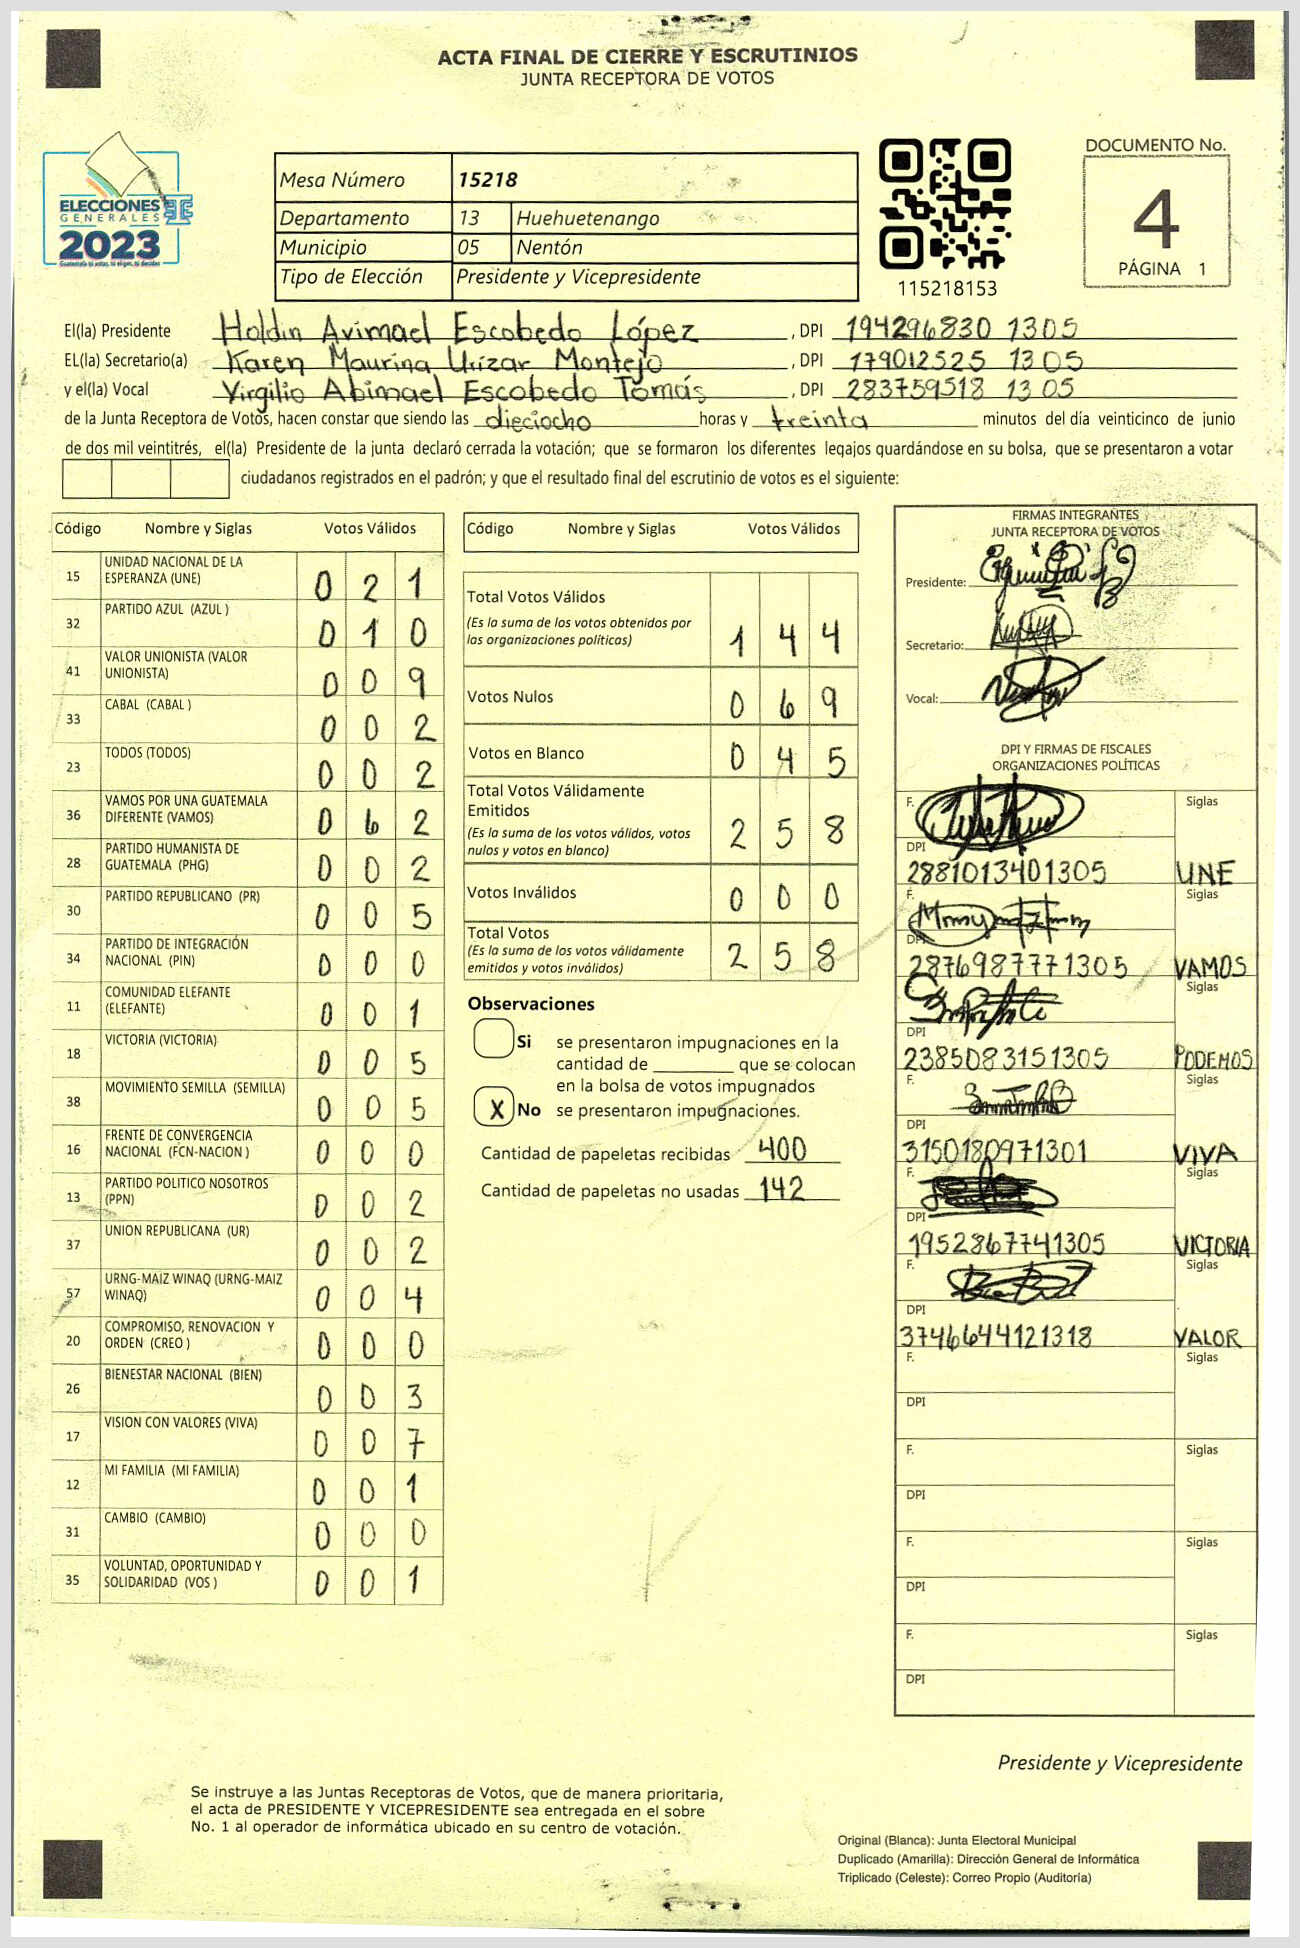 ACTA FINAL DE CIERRE Y ESCRUTINIOS
JUNTA RECEPTORA DE VOTOS
ELECCIONES
GENERALES
2023
Mesa Número 15218
Departamento 13 Huehuetenango
Municipio 05 Nentón
Tipo de Elección Presidente y Vicepresidente
115218153
DOCUMENTO No.
4
PÁGINA 1
El(la) Presidente Holdin Avimael Escobedo López , DPI 194296830 1305
EL(la) Secretario(a) Karen Maurina Urízar Montejo , DPI 179012525 1305
y el(la) Vocal Virgilio Abimael Escobedo Tomás , DPI 283759518 1305
de la Junta Receptora de Votos, hacen constar que siendo las dieciocho horas y treinta minutos del día veinticinco de junio
de dos mil veintitrés, el(la) Presidente de la junta declaró cerrada la votación; que se formaron los diferentes legajos guardándose en su bolsa, que se presentaron a votar
ciudadanos registrados en el padrón; y que el resultado final del escrutinio de votos es el siguiente:
Código Nombre y Siglas Votos Válidos
15 UNIDAD NACIONAL DE LA ESPERANZA (UNE) 0 2 1
32 PARTIDO AZUL (AZUL ) 0 1 0
41 VALOR UNIONISTA (VALOR UNIONISTA) 0 0 9
33 CABAL (CABAL ) 0 0 2
23 TODOS (TODOS) 0 0 2
36 VAMOS POR UNA GUATEMALA DIFERENTE (VAMOS) 0 6 2
28 PARTIDO HUMANISTA DE GUATEMALA (PHG) 0 0 2
30 PARTIDO REPUBLICANO (PR) 0 0 5
34 PARTIDO DE INTEGRACIÓN NACIONAL (PIN) 0 0 0
11 COMUNIDAD ELEFANTE (ELEFANTE) 0 0 1
18 VICTORIA (VICTORIA) 0 0 5
38 MOVIMIENTO SEMILLA (SEMILLA) 0 0 5
16 FRENTE DE CONVERGENCIA NACIONAL (FCN-NACION ) 0 0 0
13 PARTIDO POLITICO NOSOTROS (PPN) 0 0 2
37 UNION REPUBLICANA (UR) 0 0 2
57 URNG-MAIZ WINAQ (URNG-MAIZ WINAQ) 0 0 4
20 COMPROMISO, RENOVACION Y ORDEN (CREO ) 0 0 0
26 BIENESTAR NACIONAL (BIEN) 0 0 3
17 VISION CON VALORES (VIVA) 0 0 7
12 MI FAMILIA (MI FAMILIA) 0 0 1
31 CAMBIO (CAMBIO) 0 0 0
35 VOLUNTAD, OPORTUNIDAD Y SOLIDARIDAD (VOS ) 0 0 1
Código Nombre y Siglas Votos Válidos
Total Votos Válidos 1 4 4
(Es la suma de los votos obtenidos por
las organizaciones políticas)
Votos Nulos 0 6 9
Votos en Blanco 0 4 5
Total Votos Válidamente
Emitidos 2 5 8
(Es la suma de los votos válidos, votos
nulos y votos en blanco)
Votos Inválidos 0 0 0
Total Votos 2 5 8
(Es la suma de los votos válidamente
emitidos y votos inválidos)
Observaciones
Si se presentaron impugnaciones en la
cantidad de ________ que se colocan
en la bolsa de votos impugnados
X No se presentaron impugnaciones.
Cantidad de papeletas recibidas 400
Cantidad de papeletas no usadas 142
FIRMAS INTEGRANTES
JUNTA RECEPTORA DE VOTOS
Presidente:
Secretario:
Vocal:
DPI Y FIRMAS DE FISCALES
ORGANIZACIONES POLÍTICAS
F. Siglas
DPI
2881013401305 UNE
F. Siglas
DPI
2876987771305 VAMOS
Siglas
DPI
2385083151305 PODEMOS
F. Siglas
DPI
3150180971301 VIVA
F. Siglas
DPI
1952867741305 VICTORIA
F. Siglas
DPI
3746644121318 VALOR
F. Siglas
DPI
F. Siglas
DPI
F. Siglas
DPI
F. Siglas
DPI
Presidente y Vicepresidente
Se instruye a las Juntas Receptoras de Votos, que de manera prioritaria,
el acta de PRESIDENTE Y VICEPRESIDENTE sea entregada en el sobre
No. 1 al operador de informática ubicado en su centro de votación.
Original (Blanca): Junta Electoral Municipal
Duplicado (Amarilla): Dirección General de Informática
Triplicado (Celeste): Correo Propio (Auditoría)